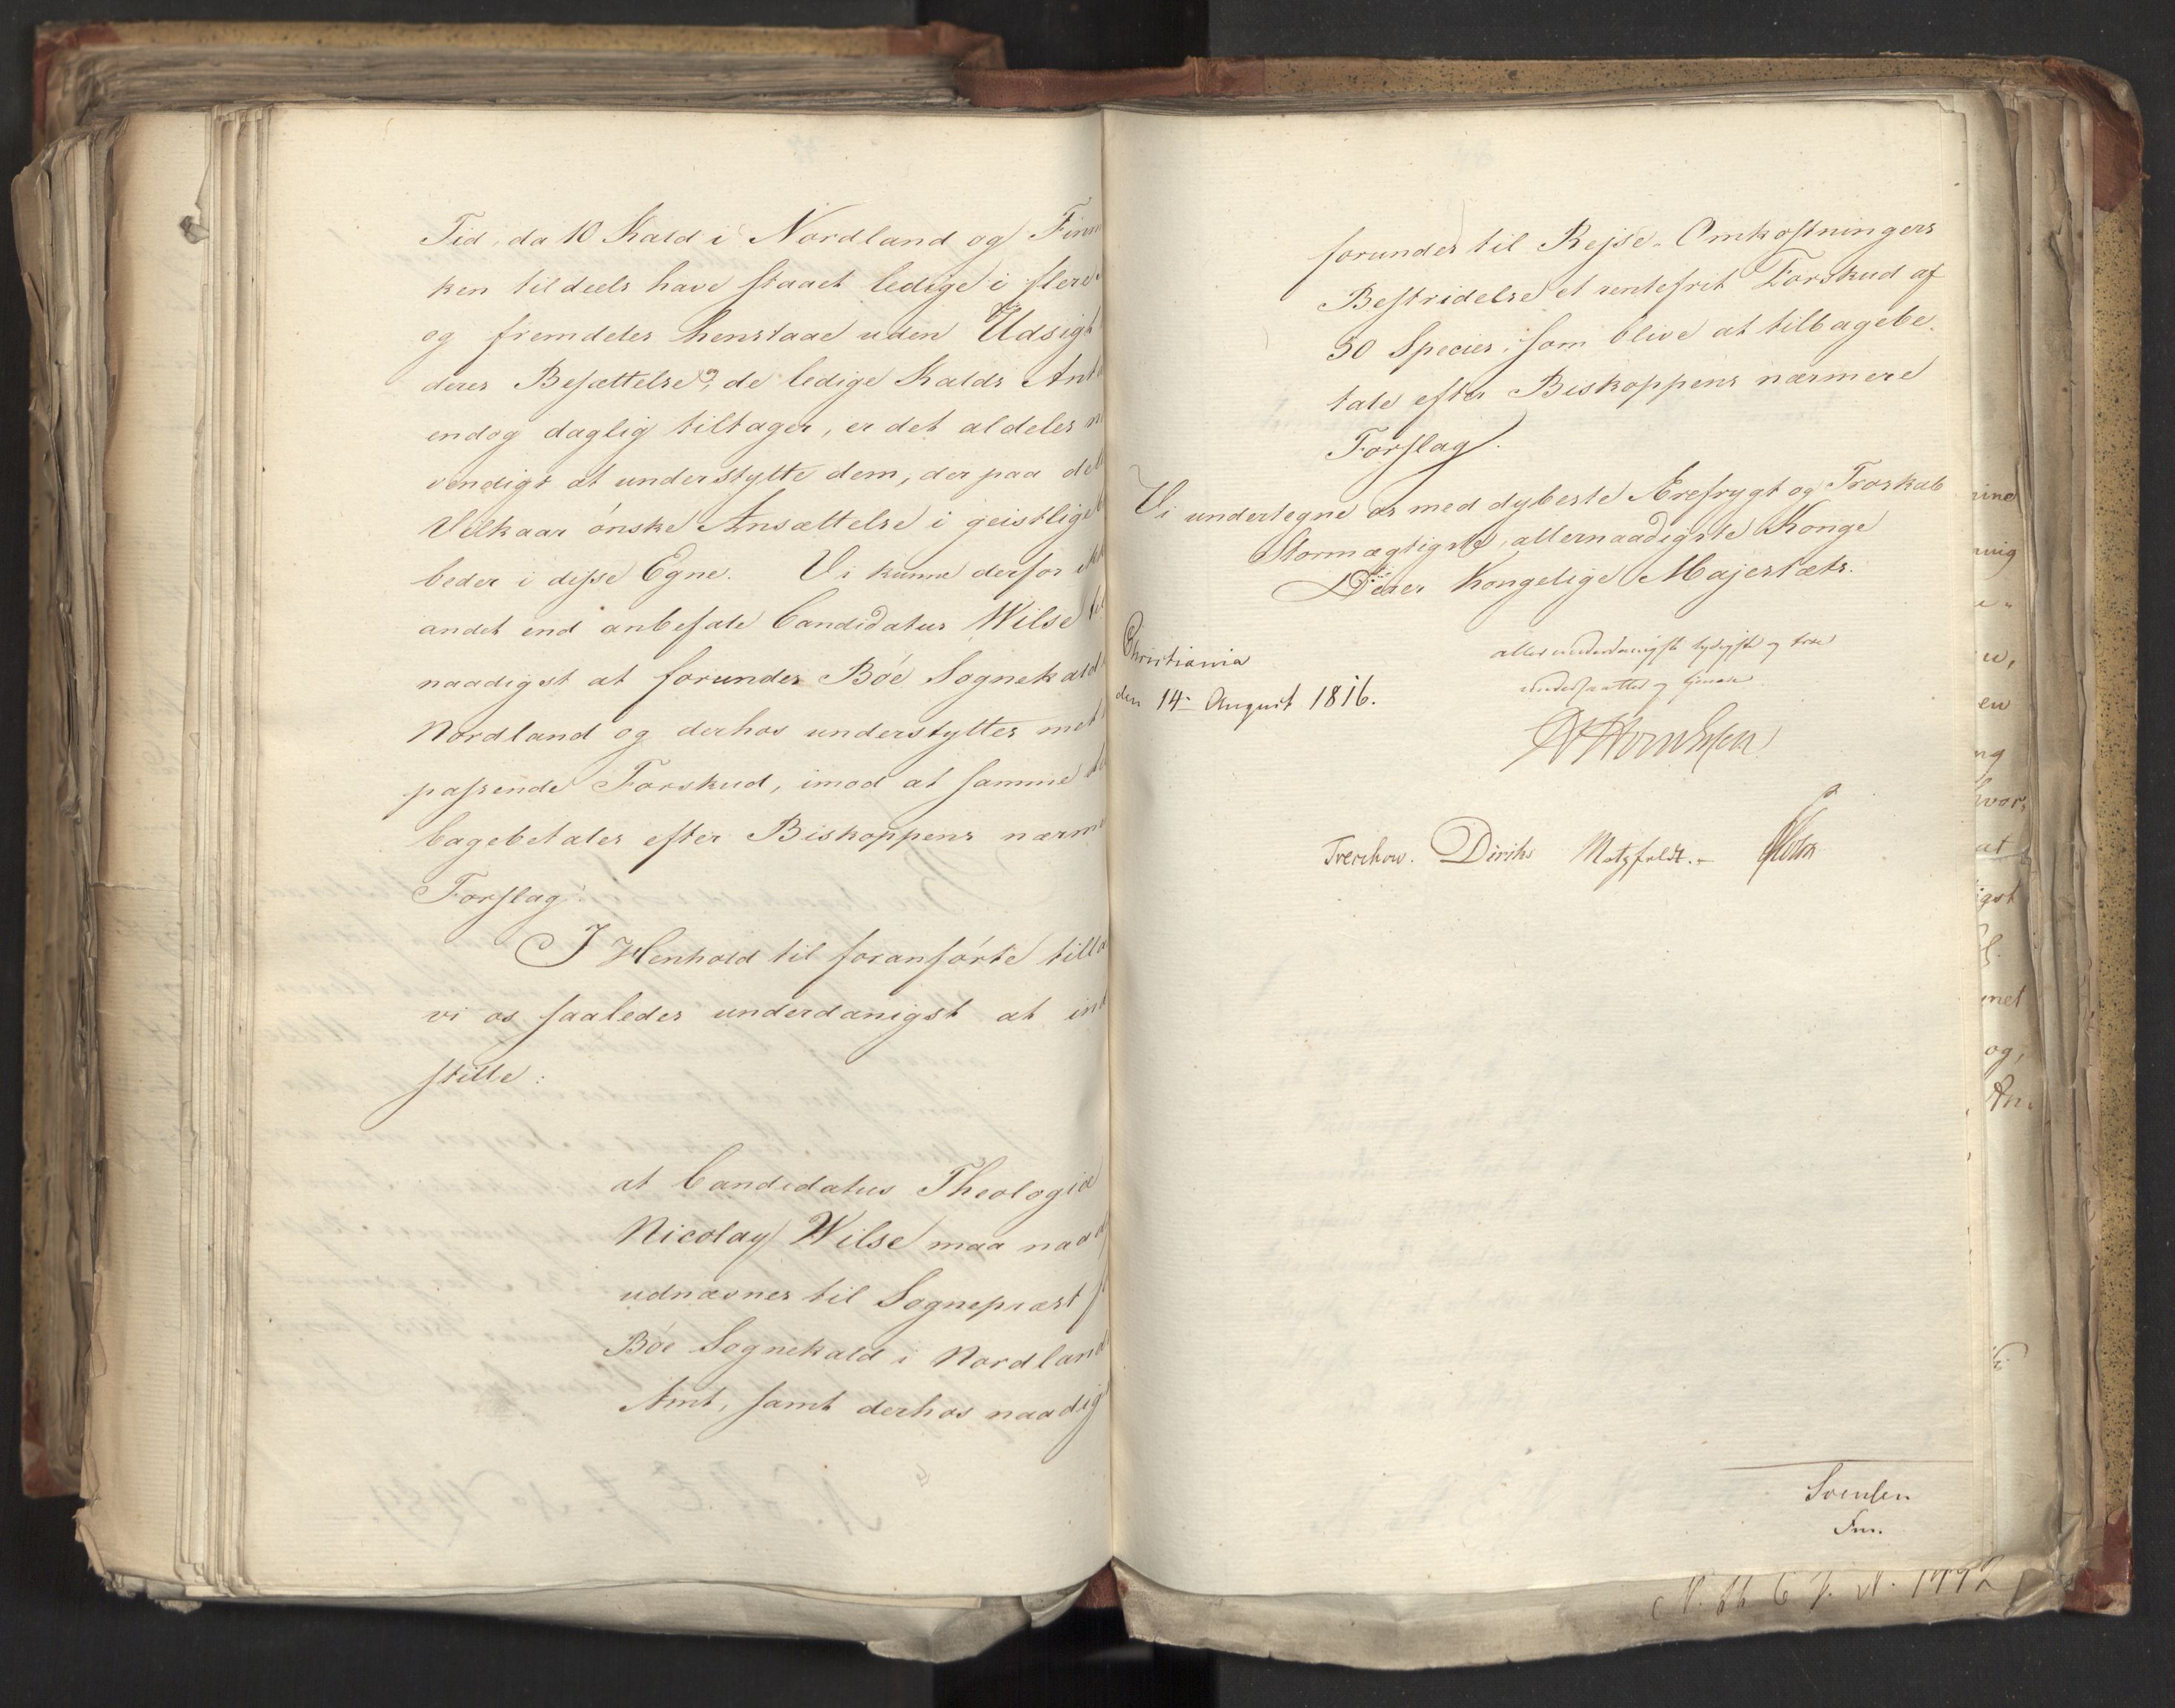 Tid, da 10 Kald i Nordland og Finm
ken tildeels have staaet ledige i flere
og fremdeles henstaae uden Udsigt
deres Besættelse, de ledige Kalds Ant
endog daglig tiltager, er det aldeles n
vendigt at understytte dem, der paa de
Vilkaar ønske Ansættelse i geistlige
beder i disse Egne. Vi kunne derfor ik
andet end anbefale Candidatus Wilse til
naadigst at forundes Bøe Sognekald
Nordland og derhos understyttes med
passende Forskud, imod at samme
bagebetales efter Biskoppens nærme
Forslag.
I Henhold til foranførte tilla
vi os saaledes underdanigst at ind
stille:
at Candidatus Theologiæ
Nicolay Wilse maa naad
udnævnes til Sognepræst f
Bøe Sognekald i Nordland
Amt, samt derhos naadig
forundes til Rejse-Omkostningers
Bestridelse et rentefrit Forskud af
50 Species, som blive at tilbagebe-
tale efter Biskoppens nærmere
Forslag.
Vi undertegne os med dybeste Ærefrygt og Troskab
Stormægtigste, allernaadigste Konge
Deres Kongelige Majestæts.
Christiania
den 14 August 1816.
allerunderdanigste lydigste og troe
undersaatter og tjenere
Treschow. Diriks Motzfeldt.
Svensen
Fm.